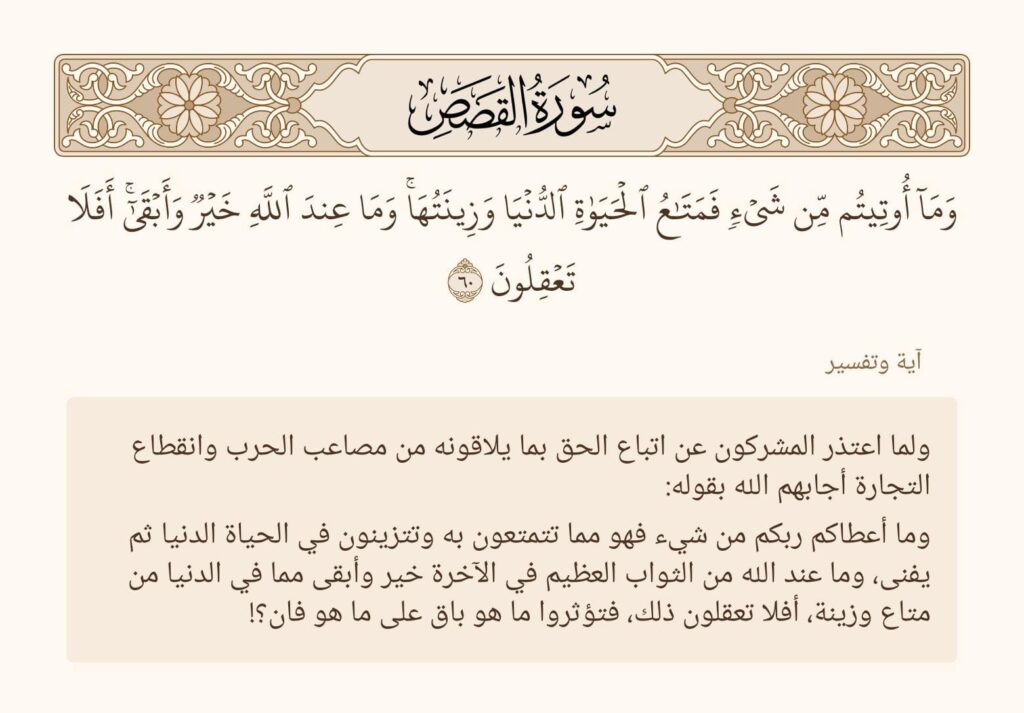 سُورَةُ القَصَصِ
وَمَآ أُوتِيتُم مِّن شَىْءٍۢ فَمَتَـٰعُ ٱلْحَيَوٰةِ ٱلدُّنْيَا وَزِينَتُهَا ۚ وَمَا عِندَ ٱللَّهِ خَيْرٌۭ وَأَبْقَىٰٓ ۚ أَفَلَا
تَعْقِلُونَ ٦٠
آية وتفسير
ولما اعتذر المشركون عن اتباع الحق بما يلاقونه من مصاعب الحرب وانقطاع
التجارة أجابهم الله بقوله:
وما أعطاكم ربكم من شيء فهو مما تتمتعون به وتتزينون في الحياة الدنيا ثم
يفنى، وما عند الله من الثواب العظيم في الآخرة خير وأبقى مما في الدنيا من
متاع وزينة، أفلا تعقلون ذلك، فتؤثروا ما هو باق على ما هو فان؟!